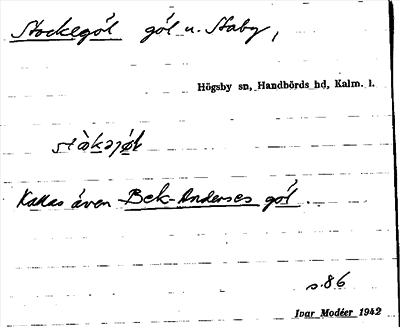 Stockegöl göl u. Staby,
Högsby sn, Handbörds hd, Kalm. l.
Kallas även Bek-Anderses göl.
s. 86
Ivar Modéer 1942